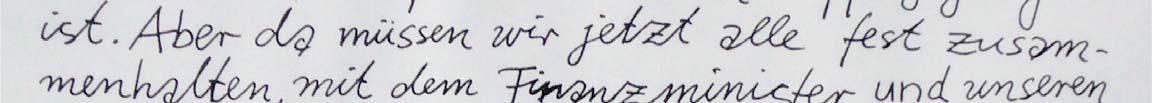 ist. Aber da müssen wir jetzt alle fest zusam-
menhalten, mit dem Finanzminister und unseren